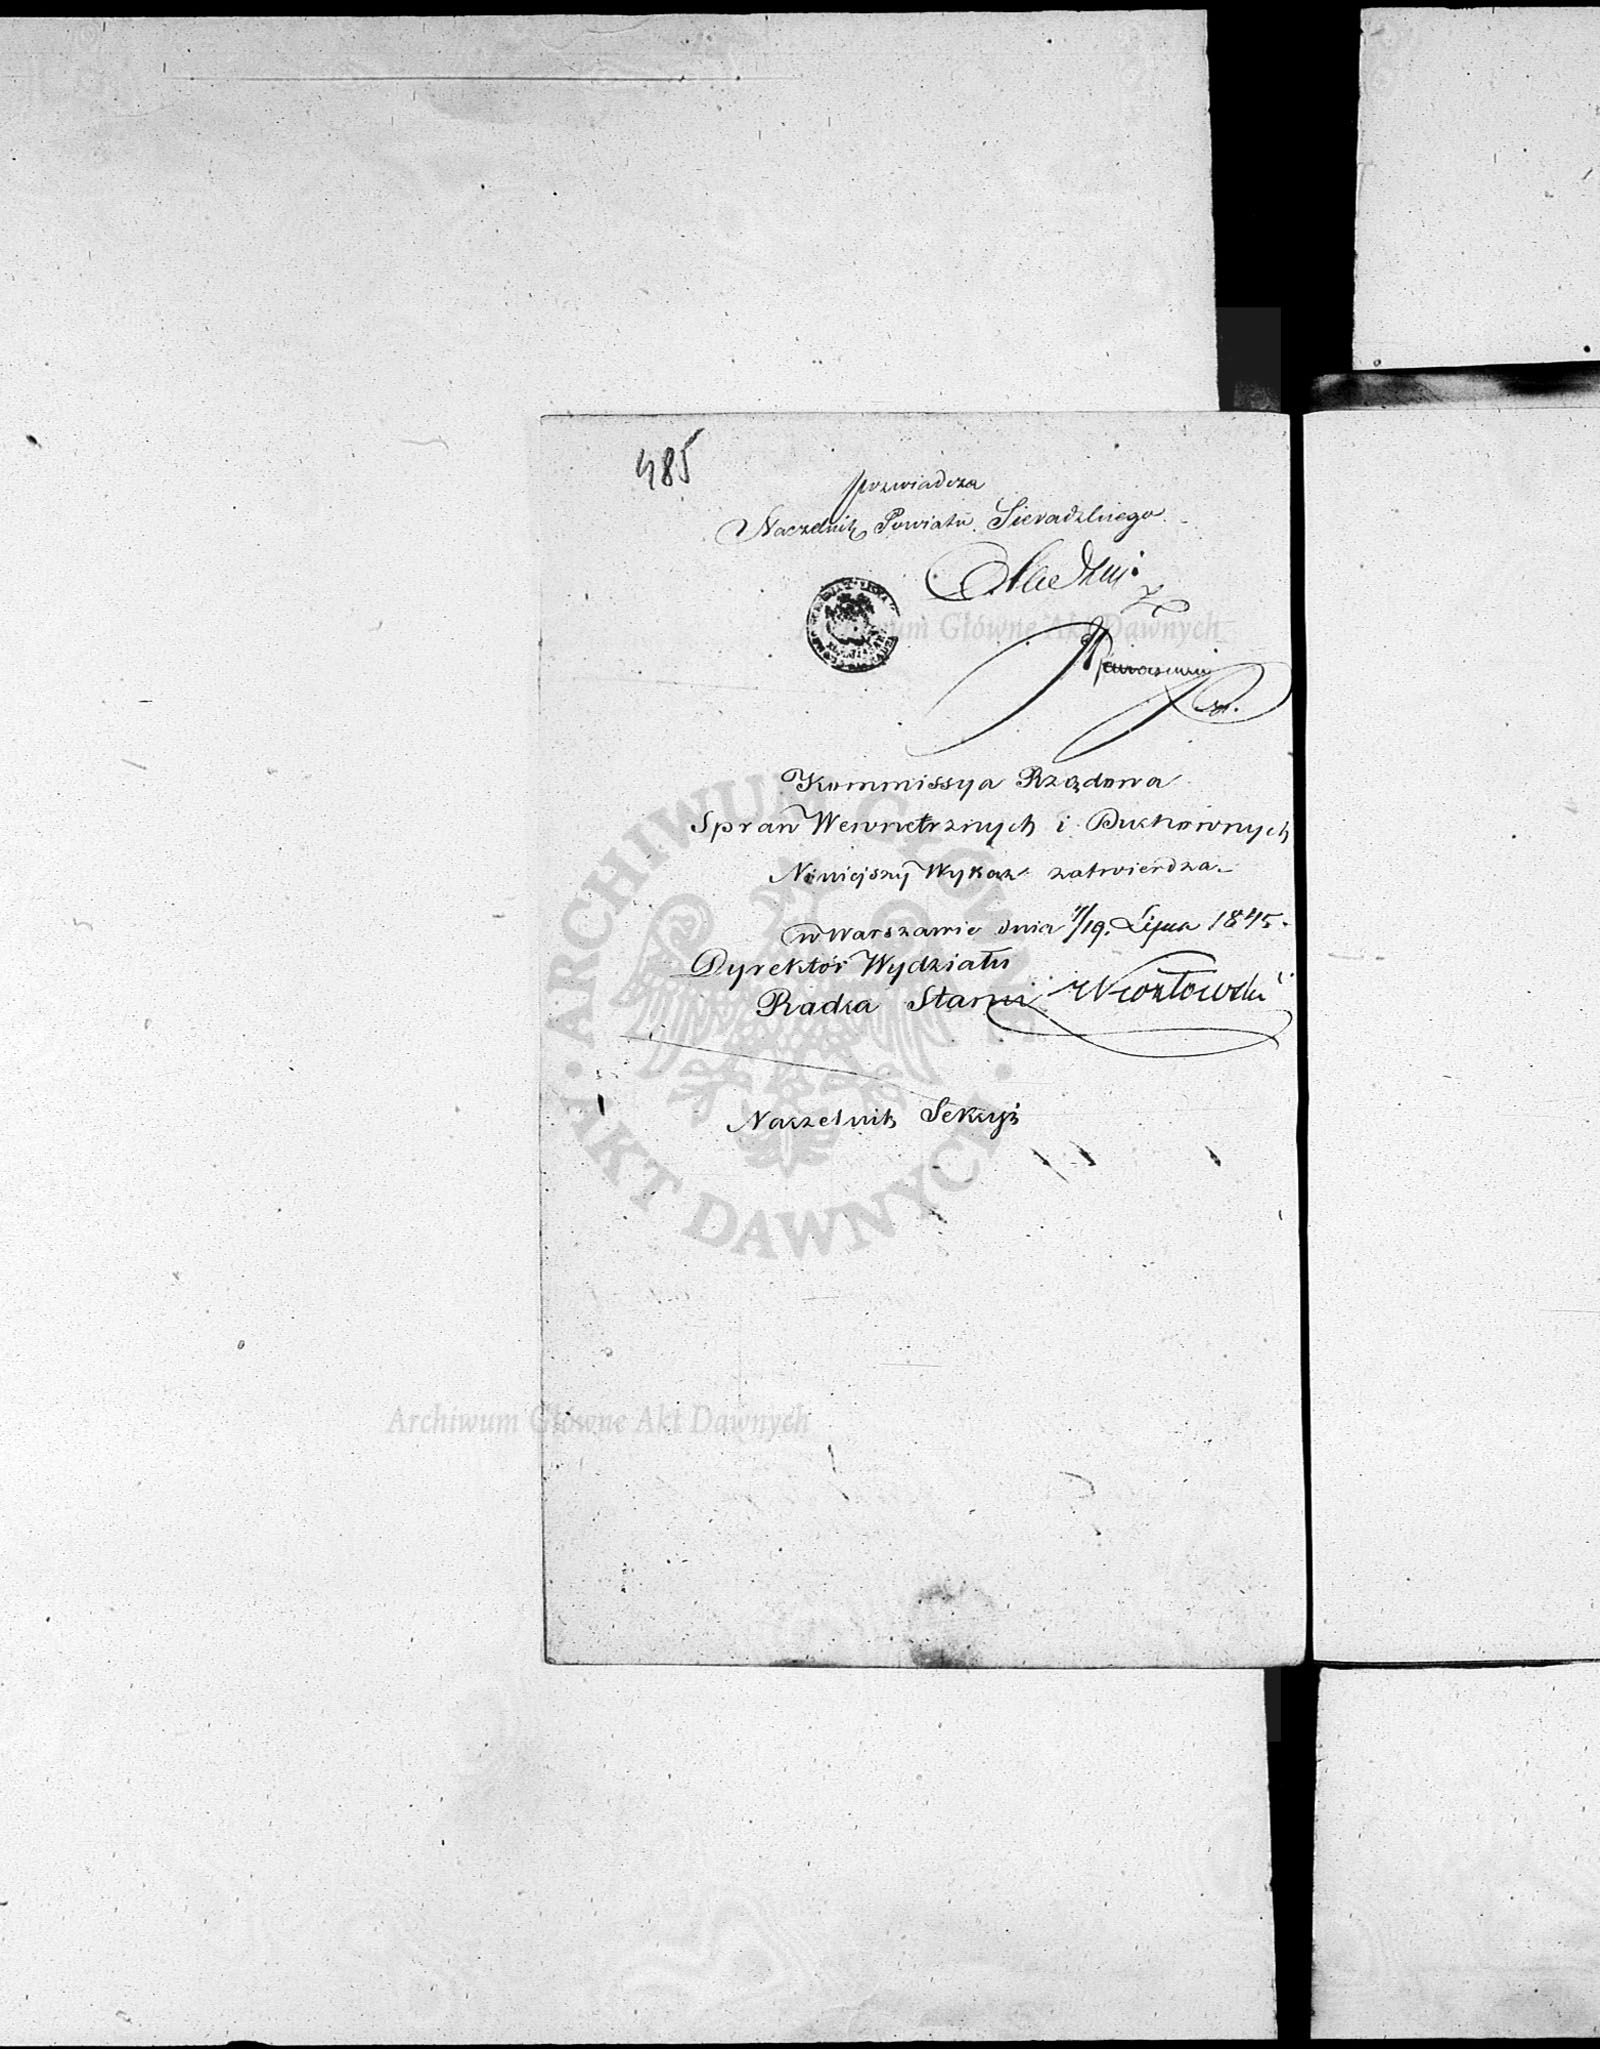 485
poswiadcza
Naczelnik Powiatu Sieradzkiego
Kommissya Rządowa
Spraw Wewnetrznych i Duchownych
Niniejszy Wykaz zatwierdza
w Warszawie dnia 7/19. Lipca 1845.
Dyrektór Wydziału
Radca Stanu
Naczelnik Sekcyi
ARCHIWUM GŁÓWNE AKT DAWNYCH
Archiwum Główne Akt Dawnych
Archiwum Główne Akt Dawnych